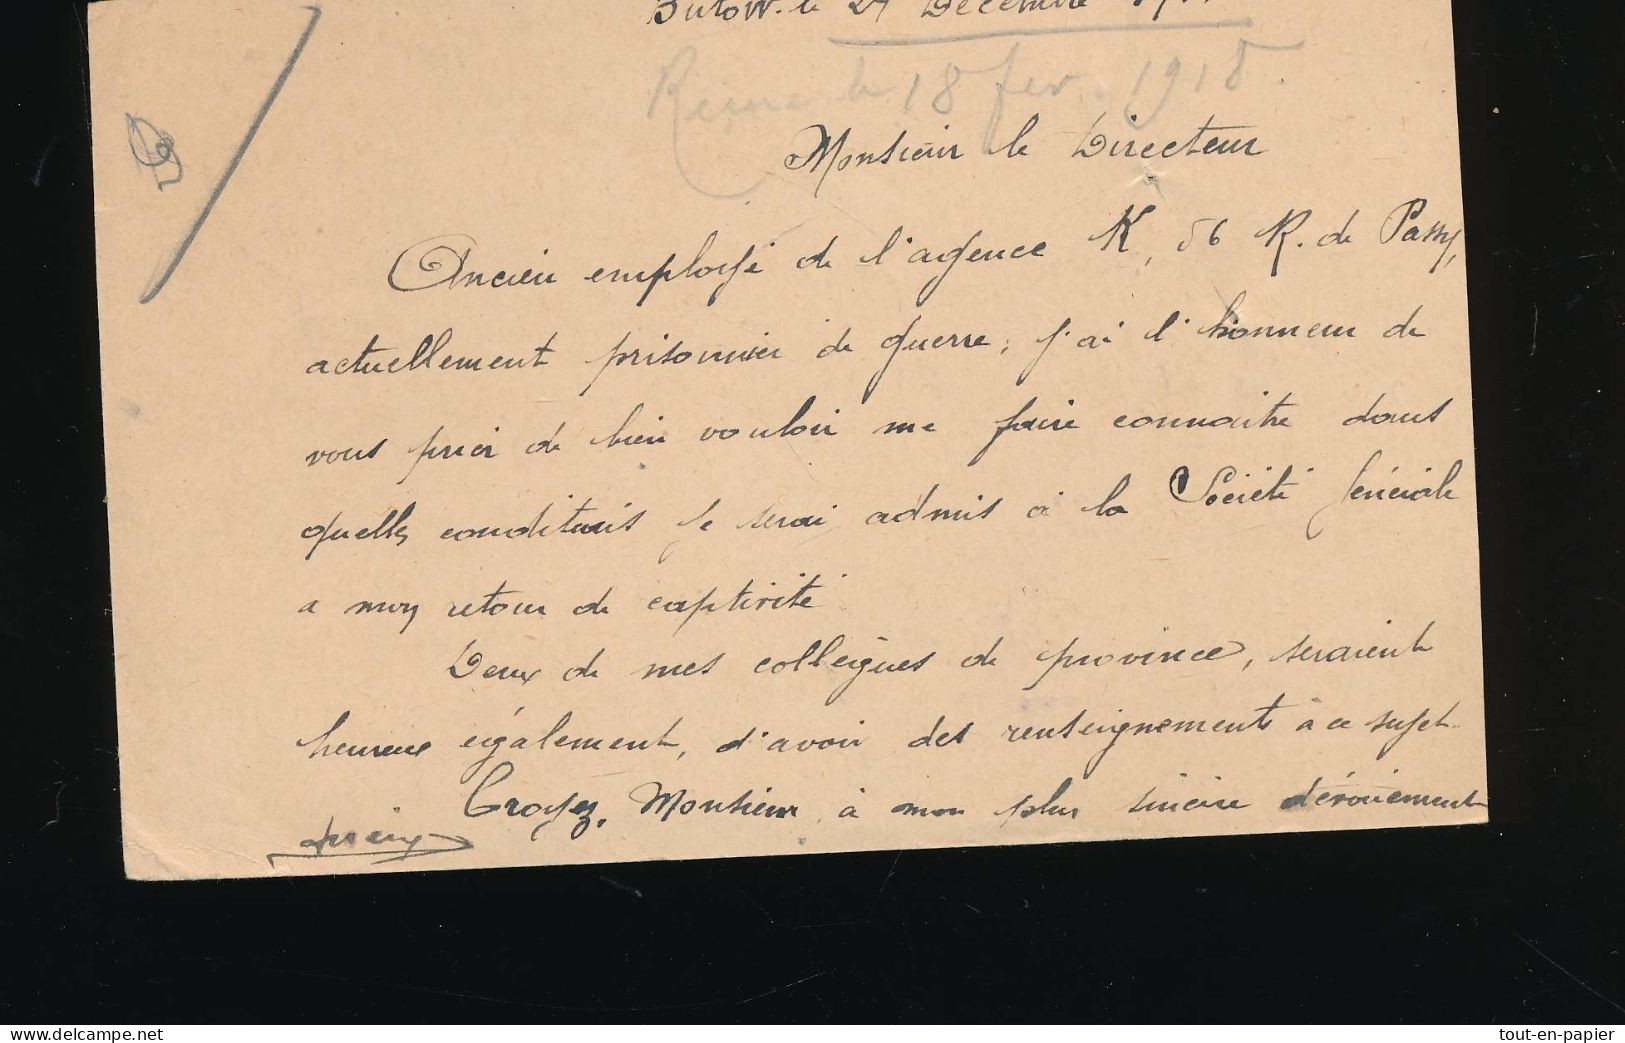 Butow. le 27 Décembre
Reçue le 18 fev. 1918.
Monsieur le Directeur
Ancien employé de l'agence K, 56 R. de Passy,
actuellement prisonnier de guerre, j'ai l'honneur de
vous prier de bien vouloir me faire connaitre dans
quelles conditions je serai admis à la Société Générale
a mon retour de captivité
Deux de mes collègues de province, seraient
heureux également, d'avoir des renseignements à ce sujet
Croyez, Monsieur, à mon plus sincère dévouement
https://www.delcampe.net
tout-en-papier